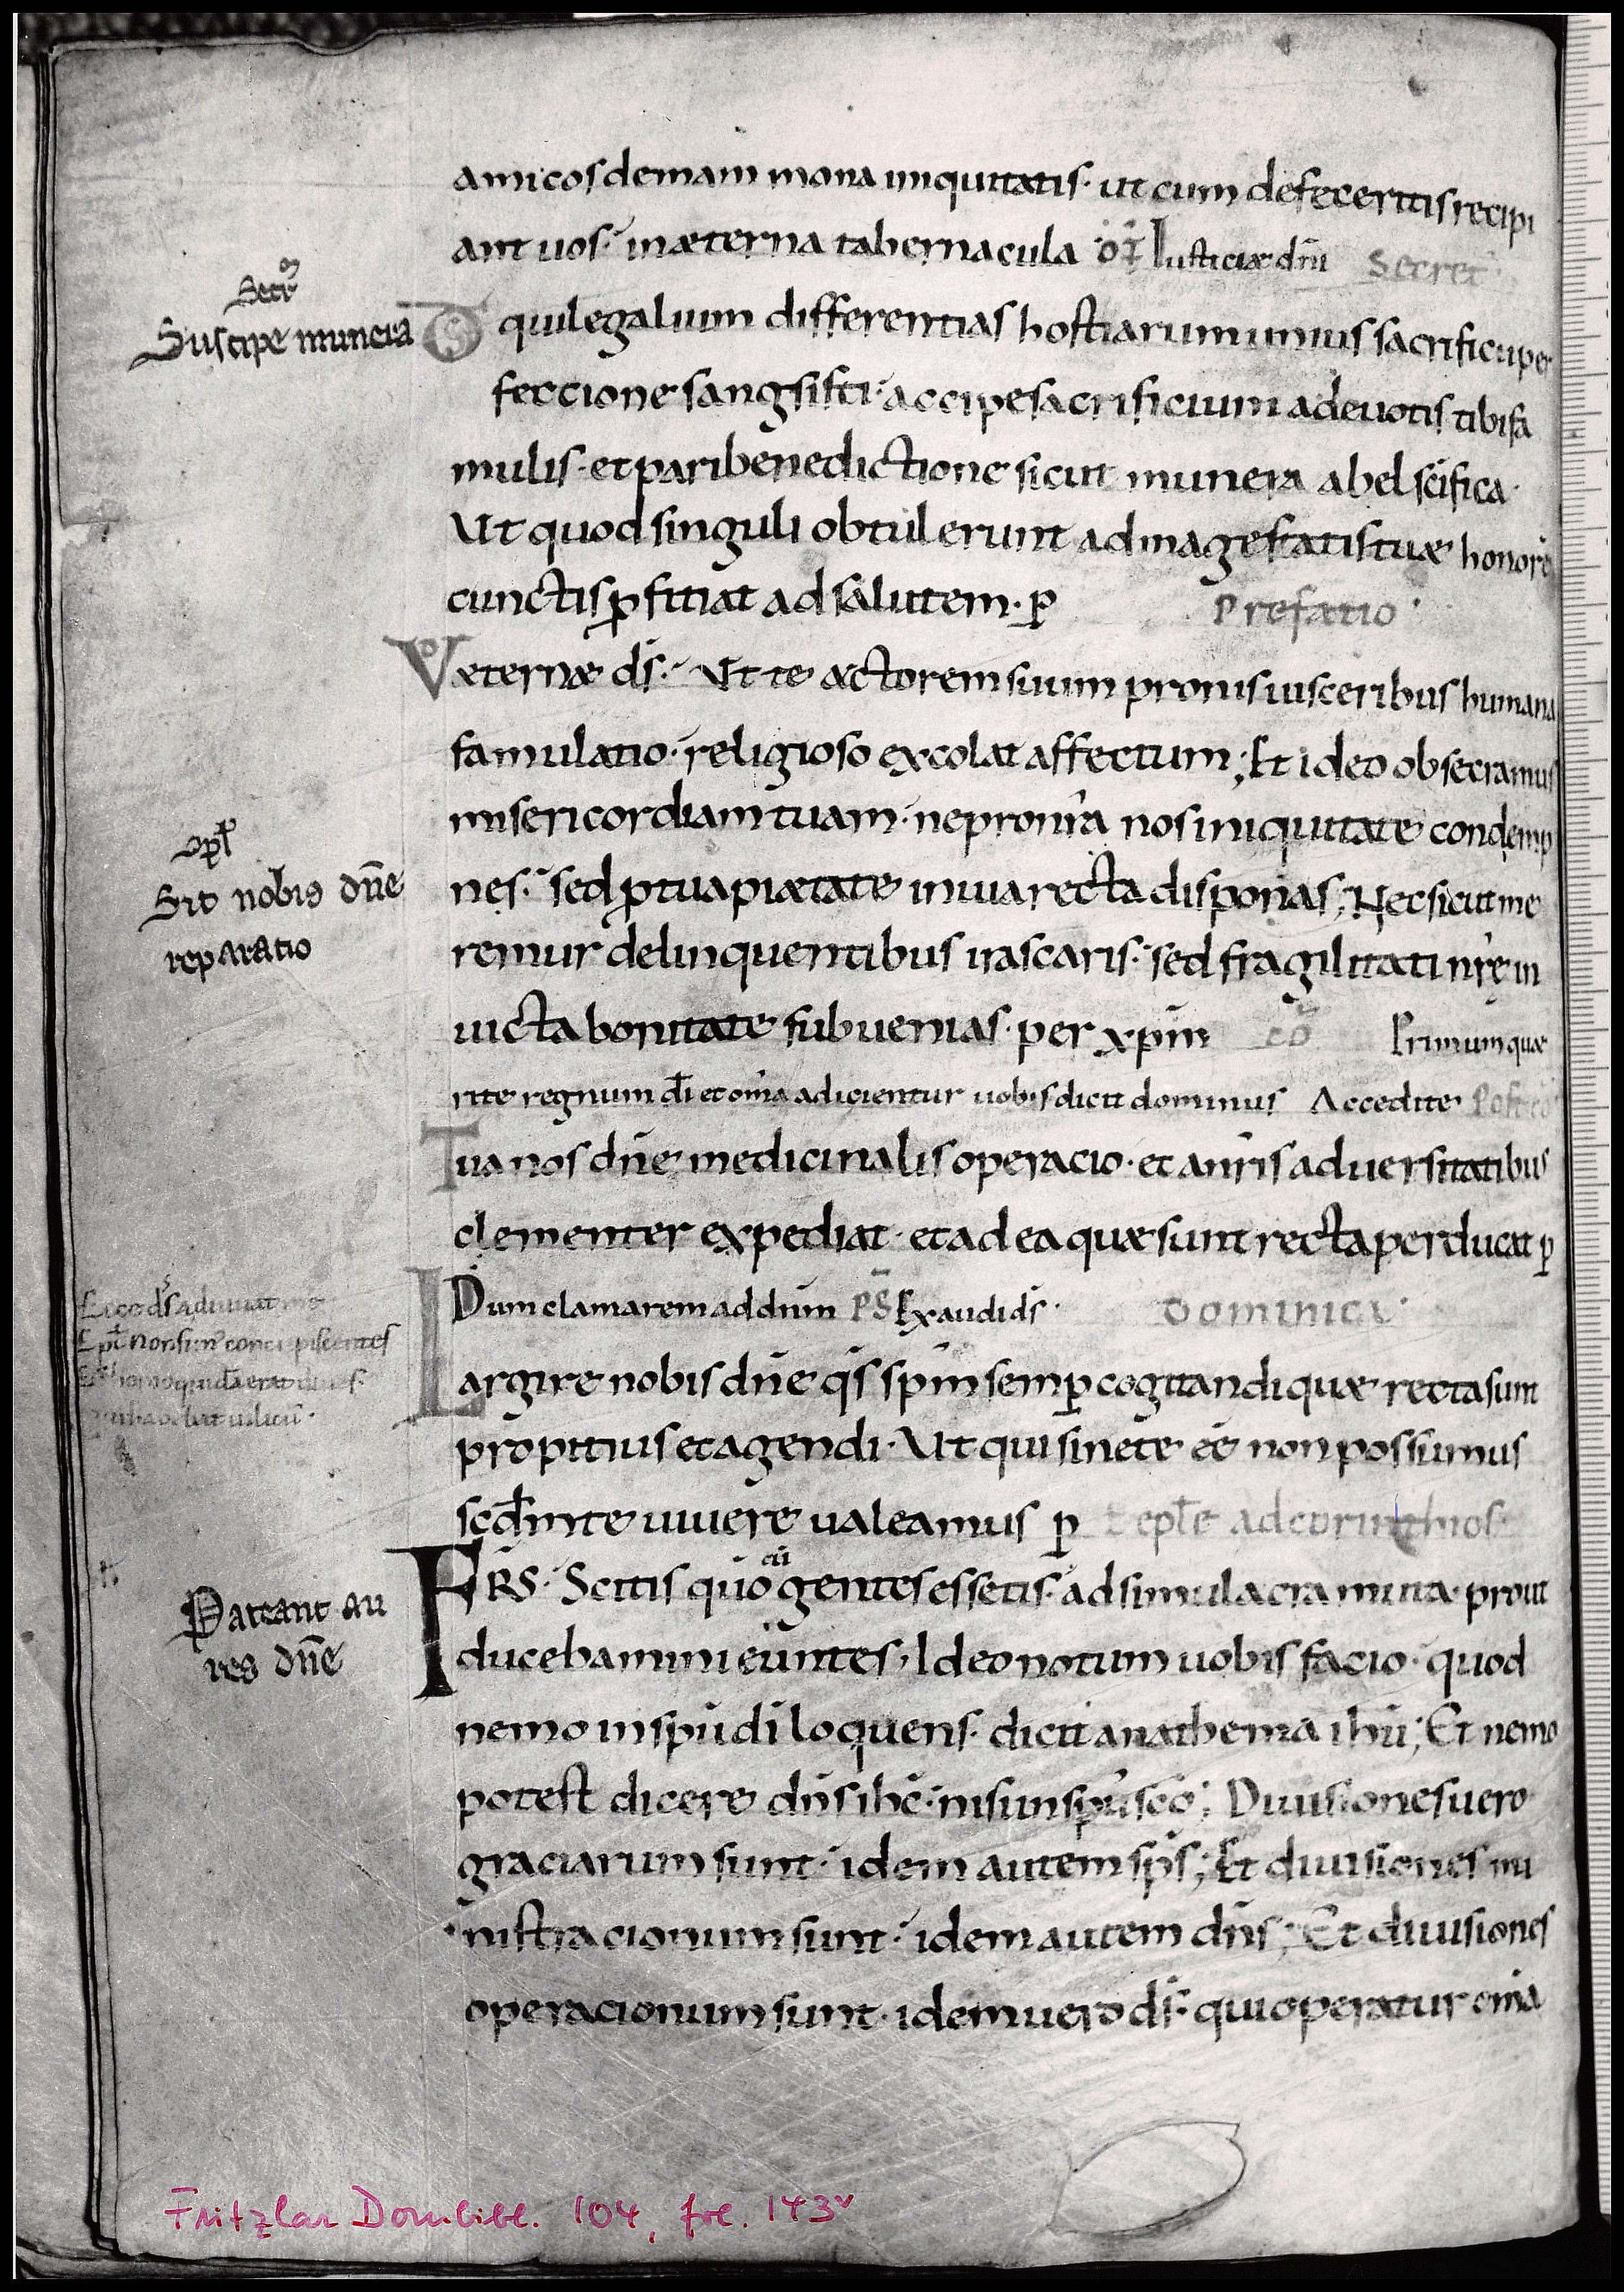 amicos demam mona iniquitatis · ut cum defeceritis recipi
ant uos · in æterna tabernacula · of Iusticiæ dni Secret
Secr
Suscipe munera
Ds qui legalium differentias hostiarum unius sacrificii per
feccione sangsisti · accipe sacrificium a deuotis tibi fa
mulis · et pari benedictione sicut munera abel scifica ·
Ut quod singuli obtulerunt ad magestatis tuæ honorē
cunctis ꝓfitiat ad salutem · p Prefatio ·
V æterne ds · Ut te actorem suum pronis uisceribus humana
famulatio · religioso excolat affectum ; Et ideo obsecramus
misericordiam tuam · ne pro nra nos iniquitate condemp
nes · sed ꝓ tua piætate in uia recta disponas ; Nec sicut me
remur delinquentibus irascaris · sed fragilitati nre in
uicta bonitate subuenias · per xpm cō Primum quæ
rite regnum di et omia adicientur uobis dicit dominus Accedite Postcō
Sit nobis dne
reparatio
Tua nos dne medicinalis operacio · et a nris aduersitatibus
clementer expediat · et ad ea quæ sunt recta perducat p
Dum clamarem ad dnm PS Exaudi ds · Dominica ·
Ecce ds adiuuat me
Epl Non sim concupiscentes
Largire nobis dne qs spm semp cogitandi quæ recta sunt
propitius et agendi · Ut qui sine te ee non possumus
scdm te uiuere ualeamus p eple ad corinthios
FRS · Scitis quō cū gentes essetis · ad simulacra muta prout
ducebamini euntes · Ideo notum uobis facio · quod
Pateant au
res dne
nemo in spu di loquens · dicit anathema ihu ; Et nemo
potest dicere dns ihc · nisi in spu sco ; Diuisiones uero
graciarum sunt · idem autem sps ; Et diuisiones mi
nistracionum sunt · idem autem dns ; Et diuisiones
operacionum sunt · idem uero ds · qui operatur omia
Fritzlar Dombibl. 104, fol. 143v